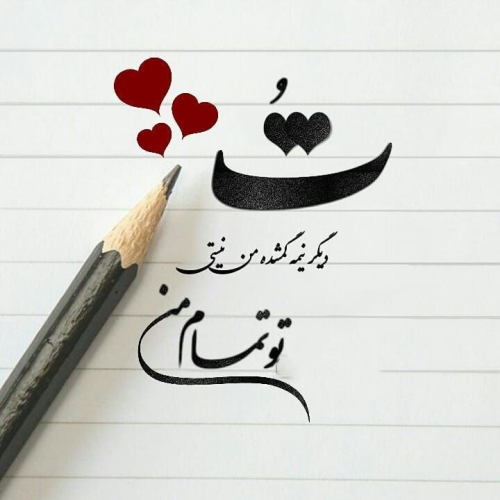 تُ
دیگر نیمه گمشده من نیستی
تو تمام من